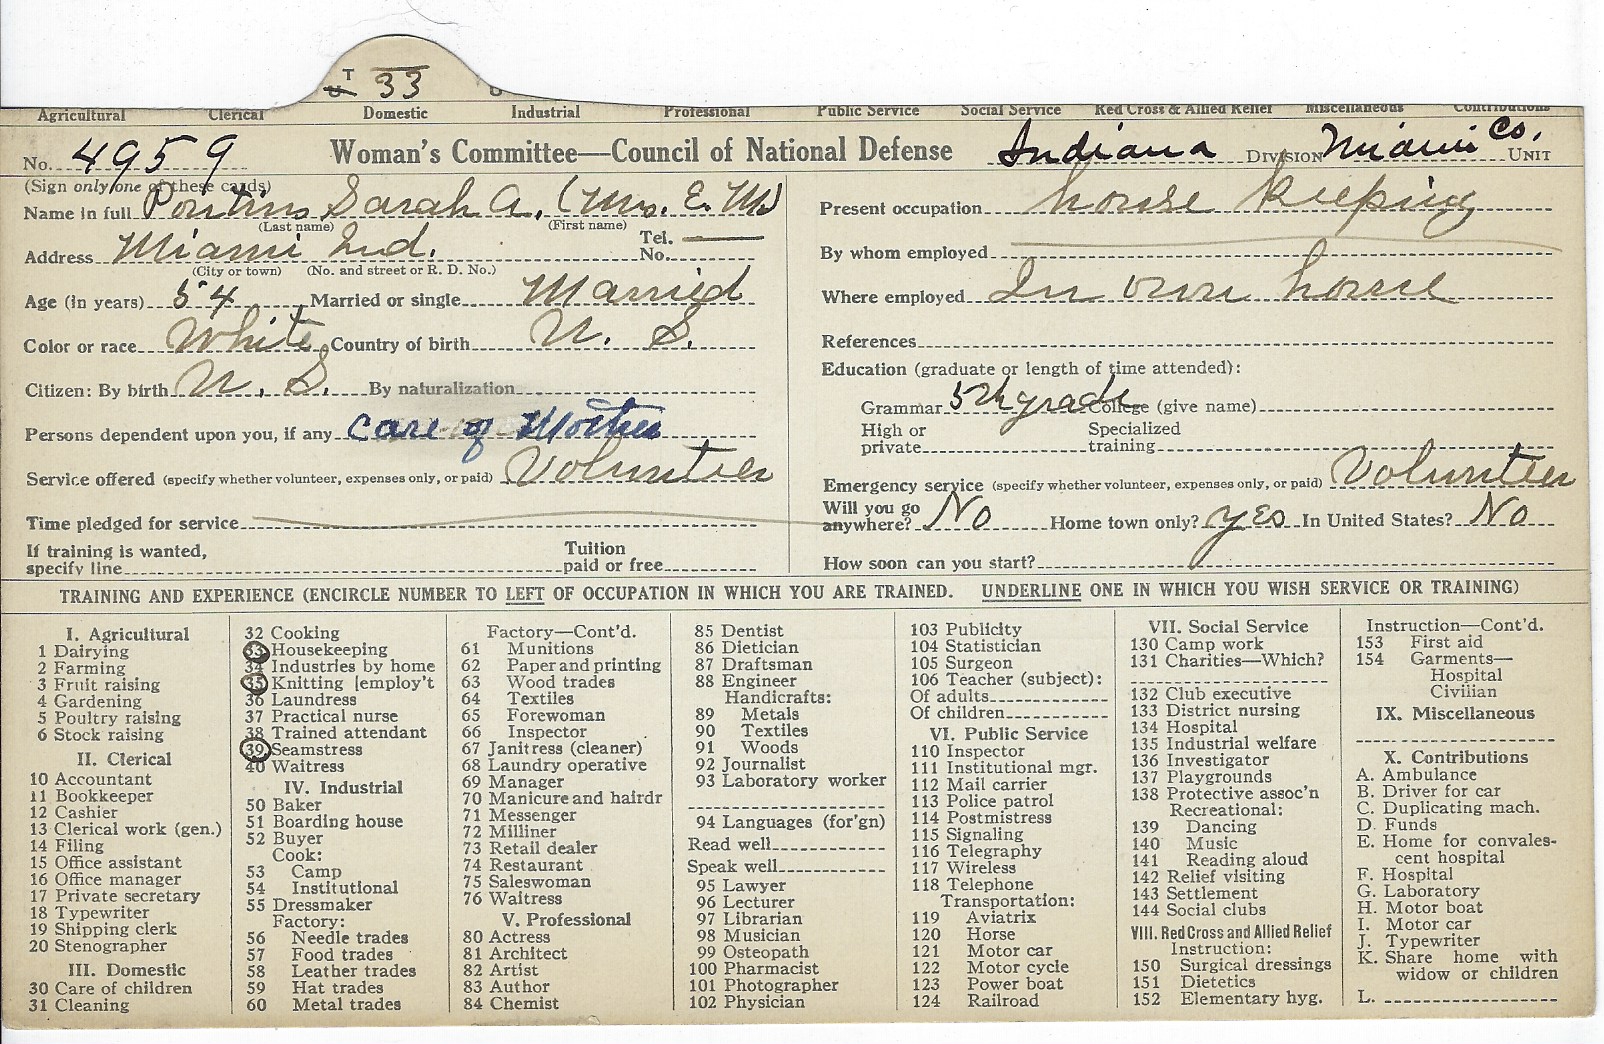 T 33
Agricultural Clerical Domestic Industrial Professional Public Service Social Service Red Cross & Allied Relief Miscellaneous Contributions
No. 4959 Woman's Committee—Council of National Defense Indiana DIVISION Miami Co. UNIT
(Sign only one of these cards)
Name in full Pontius Sarah A. (Mrs. E. M.)
(Last name) (First name)
Address Miami Ind. Tel. No.
(City or town) (No. and street or R. D. No.)
Age (in years) 54 Married or single Married
Color or race White Country of birth U. S.
Citizen: By birth U. S. By naturalization
Persons dependent upon you, if any Care of Mother
Service offered (specify whether volunteer, expenses only, or paid) Volunteer
Time pledged for service
If training is wanted, specify line Tuition paid or free
Present occupation house keeping
By whom employed
Where employed In own house
References
Education (graduate or length of time attended):
Grammar 5th grade College (give name)
High or private Specialized training
Emergency service (specify whether volunteer, expenses only, or paid) Volunteer
Will you go anywhere? No Home town only? yes In United States? No
How soon can you start?
TRAINING AND EXPERIENCE (ENCIRCLE NUMBER TO LEFT OF OCCUPATION IN WHICH YOU ARE TRAINED. UNDERLINE ONE IN WHICH YOU WISH SERVICE OR TRAINING)
I. Agricultural
1 Dairying
2 Farming
3 Fruit raising
4 Gardening
5 Poultry raising
6 Stock raising
II. Clerical
10 Accountant
11 Bookkeeper
12 Cashier
13 Clerical work (gen.)
14 Filing
15 Office assistant
16 Office manager
17 Private secretary
18 Typewriter
19 Shipping clerk
20 Stenographer
III. Domestic
30 Care of children
31 Cleaning
32 Cooking
33 Housekeeping
34 Industries by home
35 Knitting [employ't
36 Laundress
37 Practical nurse
38 Trained attendant
39 Seamstress
40 Waitress
IV. Industrial
50 Baker
51 Boarding house
52 Buyer
Cook:
53 Camp
54 Institutional
55 Dressmaker
Factory:
56 Needle trades
57 Food trades
58 Leather trades
59 Hat trades
60 Metal trades
Factory—Cont'd.
61 Munitions
62 Paper and printing
63 Wood trades
64 Textiles
65 Forewoman
66 Inspector
67 Janitress (cleaner)
68 Laundry operative
69 Manager
70 Manicure and hairdr
71 Messenger
72 Milliner
73 Retail dealer
74 Restaurant
75 Saleswoman
76 Waitress
V. Professional
80 Actress
81 Architect
82 Artist
83 Author
84 Chemist
85 Dentist
86 Dietician
87 Draftsman
88 Engineer
Handicrafts:
89 Metals
90 Textiles
91 Woods
92 Journalist
93 Laboratory worker
94 Languages (for'gn)
Read well
Speak well
95 Lawyer
96 Lecturer
97 Librarian
98 Musician
99 Osteopath
100 Pharmacist
101 Photographer
102 Physician
103 Publicity
104 Statistician
105 Surgeon
106 Teacher (subject):
Of adults
Of children
VI. Public Service
110 Inspector
111 Institutional mgr.
112 Mail carrier
113 Police patrol
114 Postmistress
115 Signaling
116 Telegraphy
117 Wireless
118 Telephone
Transportation:
119 Aviatrix
120 Horse
121 Motor car
122 Motor cycle
123 Power boat
124 Railroad
VII. Social Service
130 Camp work
131 Charities—Which?
132 Club executive
133 District nursing
134 Hospital
135 Industrial welfare
136 Investigator
137 Playgrounds
138 Protective assoc'n
Recreational:
139 Dancing
140 Music
141 Reading aloud
142 Relief visiting
143 Settlement
144 Social clubs
VIII. Red Cross and Allied Relief
Instruction:
150 Surgical dressings
151 Dietetics
152 Elementary hyg.
Instruction—Cont'd.
153 First aid
154 Garments—
Hospital
Civilian
IX. Miscellaneous
X. Contributions
A. Ambulance
B. Driver for car
C. Duplicating mach.
D. Funds
E. Home for convales-
cent hospital
F. Hospital
G. Laboratory
H. Motor boat
I. Motor car
J. Typewriter
K. Share home with
widow or children
L.